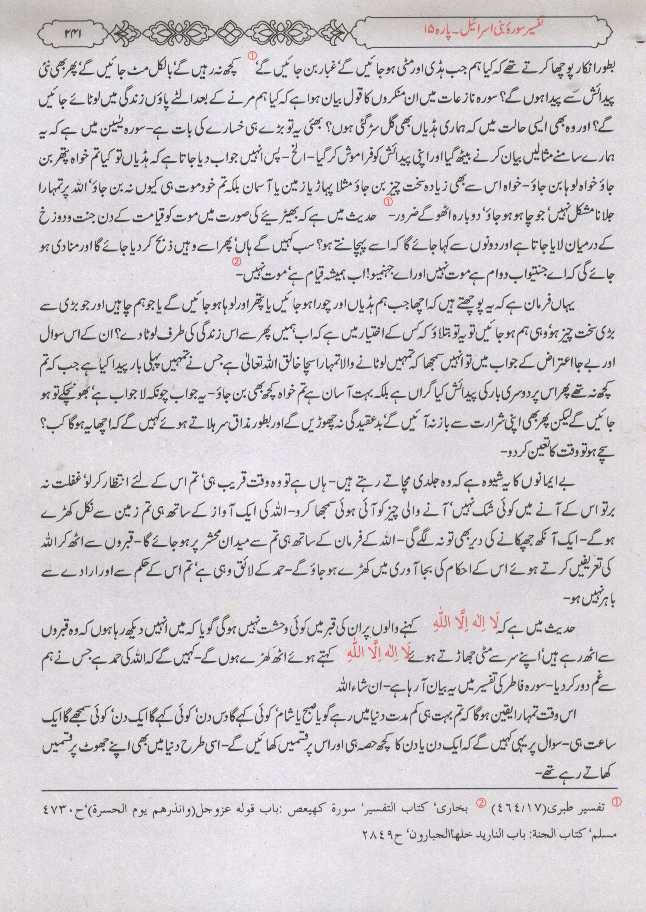 تفسیر سورۂ بنی اسرائیل۔ پارہ ۱۵
۲۴۱
بطور انکار پوچھا کرتے تھے کہ کیا ہم جب ہڈی اور مٹی ہو جائیں گے‘ غبار بن جائیں گے‘ ① کچھ نہ رہیں گے‘ بالکل مٹ جائیں گے‘ پھر بھی نئی
پیدائش سے پیدا ہوں گے؟ سورہ نازعات میں ان منکروں کا قول بیان ہوا ہے کہ کیا ہم مرنے کے بعد الٹے پاؤں زندگی میں لوٹائے جائیں
گے؟ اور وہ بھی ایسی حالت میں کہ ہماری ہڈیاں بھی گل سڑ گئی ہوں؟ بھئی یہ تو بڑے ہی خسارے کی بات ہے- سورہ یٰسین میں ہے کہ یہ
ہمارے سامنے مثالیں بیان کرنے بیٹھ گیا اور اپنی پیدائش کو فراموش کر گیا- الخ- پس انہیں جواب دیا جاتا ہے کہ ہڈیاں تو کیا تم خواہ پتھر بن
جاؤ خواہ لوہا بن جاؤ- خواہ اس سے بھی زیادہ سخت چیز بن جاؤ مثلا پہاڑ یا زمین یا آسمان بلکہ تم خود موت ہی کیوں نہ بن جاؤ‘ اللہ پر تمہارا
جلانا مشکل نہیں‘ جو چاہو ہو جاؤ‘ دوبارہ اٹھو گے ضرور- ① حدیث میں ہے کہ بھیڑیئے کی صورت میں موت کو قیامت کے دن جنت و دوزخ
کے درمیان لایا جاتا ہے اور دونوں سے کہا جائے گا کہ اسے پہچانتے ہو؟ سب کہیں گے ہاں‘ پھر اسے وہیں ذبح کر دیا جائے گا اور منادی ہو
جائے گی کہ اے جنتیو اب دوام ہے موت نہیں اور اے جہنمیو! اب ہمیشہ قیام ہے‘ موت نہیں- ②
یہاں فرمان ہے کہ یہ پوچھتے ہیں کہ اچھا جب ہم ہڈیاں اور چورا ہو جائیں گے یا پتھر اور لوہا ہو جائیں گے یا جو ہم چاہیں اور جو بڑی سے
بڑی سخت چیز ہو وہی ہم ہو جائیں تو یہ تو بتلاؤ کہ کس کے اختیار میں ہے کہ اب ہمیں پھر سے اس زندگی کی طرف لوٹا دے؟ ان کے اس سوال
اور بے جا اعتراض کے جواب میں تو انہیں سمجھا کہ تمہیں لوٹانے والا تمہارا سچا خالق اللہ تعالیٰ ہے جس نے تمہیں پہلی بار پیدا کیا ہے جب کہ تم
کچھ نہ تھے پھر اس پر دوسری بار کی پیدائش کیا گراں ہے بلکہ بہت آسان ہے تم خواہ کچھ بھی بن جاؤ- یہ جواب چونکہ لا جواب ہے‘ بھونچکے تو ہو
جائیں گے لیکن پھر بھی اپنی شرارت سے باز نہ آئیں گے‘ بدعقیدگی نہ چھوڑیں گے اور بطور مذاق سر ہلاتے ہوئے کہیں گے کہ اچھا یہ ہو گا کب؟
سچے ہو تو وقت کا تعین کر دو-
بے ایمانوں کا یہ شیوہ ہے کہ وہ جلدی مچاتے رہتے ہیں- ہاں ہے تو وہ وقت قریب ہی‘ تم اس کے لئے انتظار کر لو‘ غفلت نہ
برتو اس کے آنے میں کوئی شک نہیں‘ آنے والی چیز کو آئی ہوئی سمجھا کرو- اللہ کی ایک آواز کے ساتھ ہی تم زمین سے نکل کھڑے
ہو گے- ایک آنکھ جھپکانے کی دیر بھی تو نہ لگے گی- اللہ کے فرمان کے ساتھ ہی تم سے میدان محشر پر ہو جائے گا- قبروں سے اٹھ کر اللہ
کی تعریفیں کرتے ہوئے اس کے احکام کی بجا آوری میں کھڑے ہو جاؤ گے- حمد کے لائق وہی ہے‘ تم اس کے حکم سے اور ارادے سے
باہر نہیں ہو-
حدیث میں ہے کہ لَا اِلٰهَ اِلَّا اللّٰهُ کہنے والوں پر ان کی قبر میں کوئی وحشت نہیں ہو گی گویا کہ میں انہیں دیکھ رہا ہوں کہ وہ قبروں
سے اٹھ رہے ہیں‘ اپنے سر سے مٹی جھاڑتے ہوئے لَا اِلٰهَ اِلَّا اللّٰهُ کہتے ہوئے اٹھ کھڑے ہوں گے- کہیں گے کہ اللہ کی حمد ہے جس نے ہم
سے غم دور کر دیا- سورہ فاطر کی تفسیر میں یہ بیان آ رہا ہے- ان شاء اللہ
اس وقت تمہارا یقین ہو گا کہ تم بہت ہی کم مدت دنیا میں رہے گویا صبح یا شام‘ کوئی کہے گا دس دن‘ کوئی کہے گا ایک دن‘ کوئی سمجھے گا ایک
ساعت ہی- سوال پر یہی کہیں گے کہ ایک دن یا دن کا کچھ حصہ ہی اور اس پر قسمیں کھائیں گے- اسی طرح دنیا میں بھی اپنے جھوٹ پر قسمیں
کھاتے رہے تھے-
① تفسیر طبری(۱۷/۴۶۴) ② بخاری‘ کتاب التفسیر‘ سورة کھیعص :باب قوله عزوجل(وانذرهم یوم الحسرة)‘ح۴۷۳۰
مسلم‘ کتاب الجنة: باب النارید خلهاالجبارون‘ ح۲۸۴۹